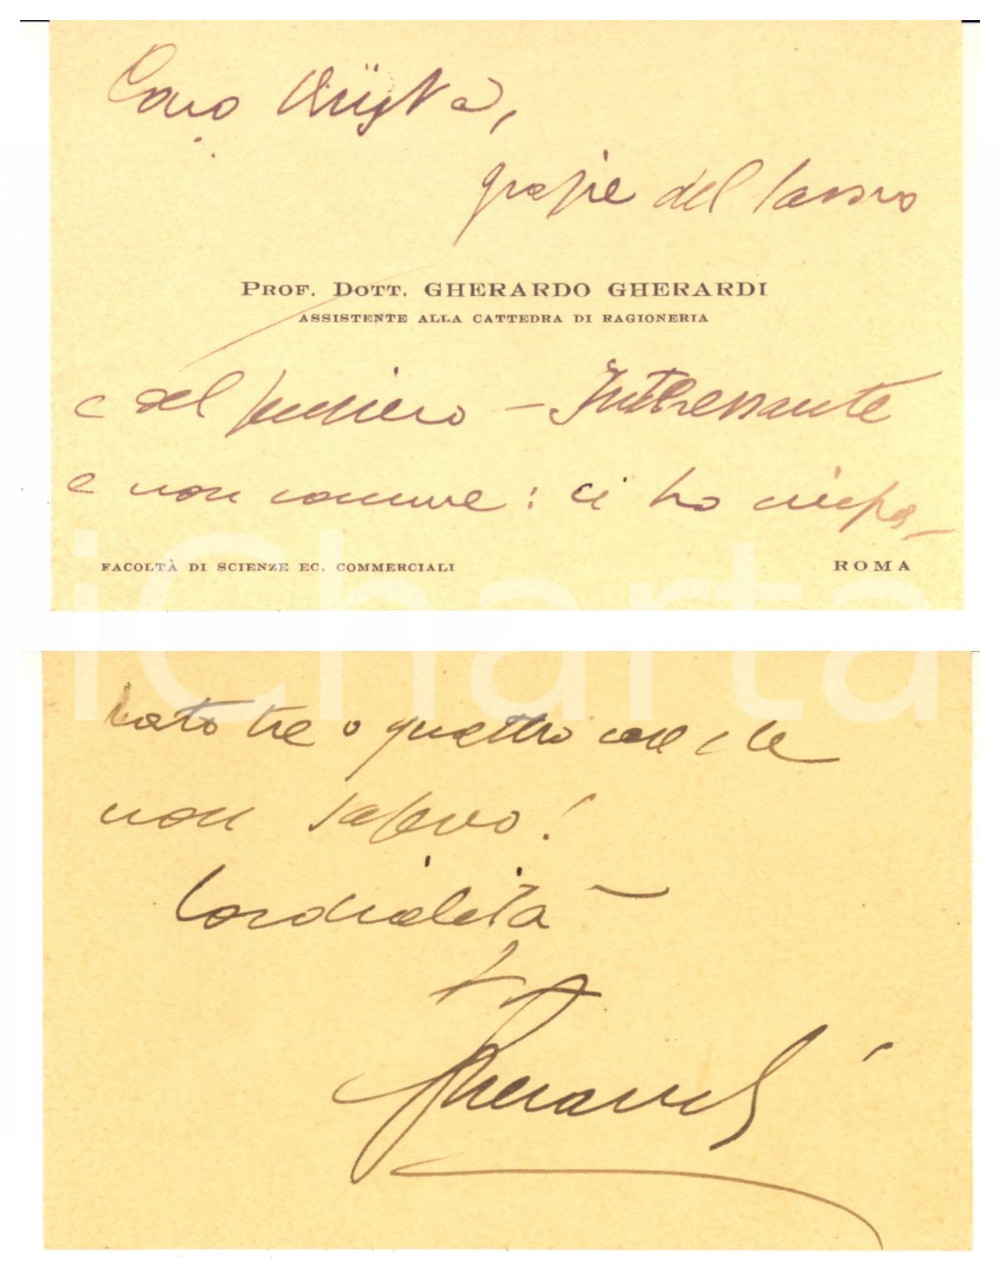 Caro
grazie del lavoro
PROF. DOTT. GHERARDO GHERARDI
ASSISTENTE ALLA CATTEDRA DI RAGIONERIA
e del pensiero – Interessante
e non comune: ci ho impa_
FACOLTÀ DI SCIENZE EC. COMMERCIALI
ROMA
iCharta
rato tre o quattro cose che
non sapevo!
Cordialità
Gherardi